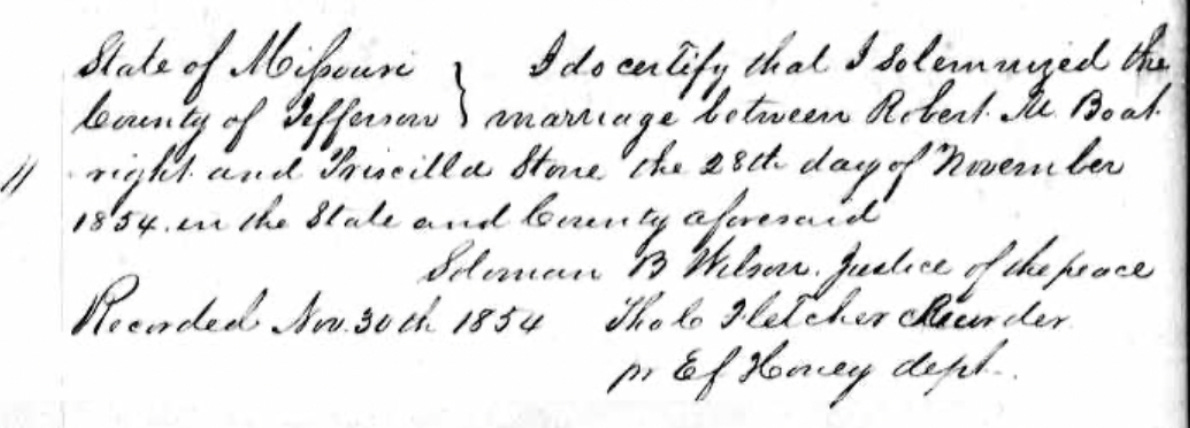 State of Missouri } I do certify that I Solemnized the
County of Jefferson } marriage between Robert M. Boat
right and Priscilla Stone the 28th day of November
1854. in the State and County aforesaid
Soloman B Wilson. Justice of the peace
Recorded Nov. 30th 1854 Tho C Fletcher Recorder
pr E f Honey dept.